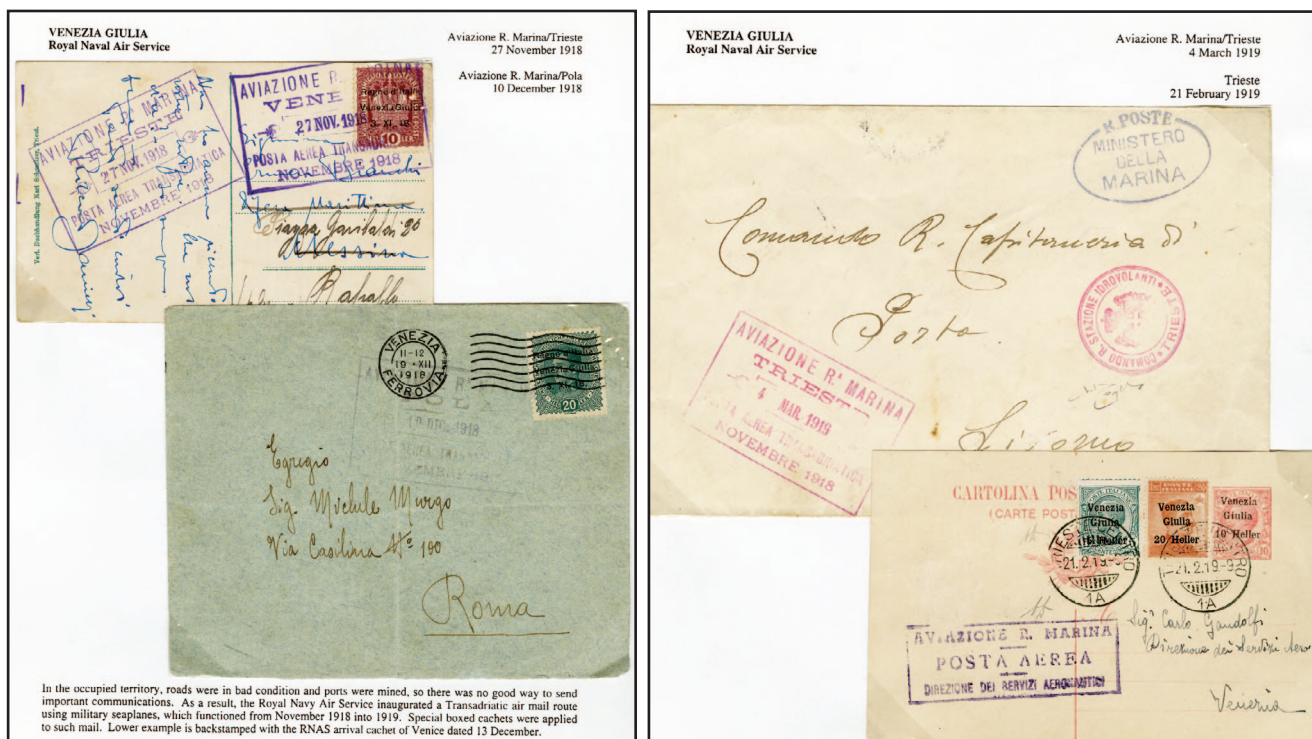 VENEZIA GIULIA
Royal Naval Air Service
Aviazione R. Marina/Trieste
27 November 1918
Aviazione R. Marina/Pola
10 December 1918
AVIAZIONE R. MARINA
TRIESTE
27 NOV. 1918
POSTA AEREA TRANSADRIATICA
NOVEMBRE 1918
Verl. Dachhandlung Karl Schmelzer, Triest.
AVIAZIONE R.
VENE
27 NOV. 1918
POSTA AEREA TRANSADRIA
NOVEMBRE 1918
Regno d'Italia
Venezia Giulia
3. XI. 18.
10
Piazza Garibaldi 20
Messina
Rapallo
VENEZIA
11-12
19·XII
1918
FERROVIA
Regno d'Italia
Venezia Giulia
3. XI. 18.
20
Egregio
Sig. Michele Murgo
Via Casilina No 100
Roma
In the occupied territory, roads were in bad condition and ports were mined, so there was no good way to send
important communications. As a result, the Royal Navy Air Service inaugurated a Transadriatic air mail route
using military seaplanes, which functioned from November 1918 into 1919. Special boxed cachets were applied
to such mail. Lower example is backstamped with the RNAS arrival cachet of Venice dated 13 December.
VENEZIA GIULIA
Royal Naval Air Service
Aviazione R. Marina/Trieste
4 March 1919
Trieste
21 February 1919
R. POSTE
MINISTERO
DELLA
MARINA
Comando R. Capitaneria di
Porto
Livorno
COMDO R. STAZIONE IDROVOLANTI
TRIESTE
AVIAZIONE Ra. MARINA
TRIESTE
4 MAR. 1919
POSTA AEREA TRANSADRIATICA
NOVEMBRE 1918
CARTOLINA POS
(CARTE POST
Venezia
Giulia
Heller
Venezia
Giulia
20 Heller
Venezia
Giulia
10 Heller
21.2.19-9
1A
21.2.19-9
1A
Sigr. Carlo Gandolfi
Direzione dei Servizi Aero
Venezia
AVIAZIONE R. MARINA
POSTA AEREA
DIREZIONE DEI SERVIZI AERONAUTICI